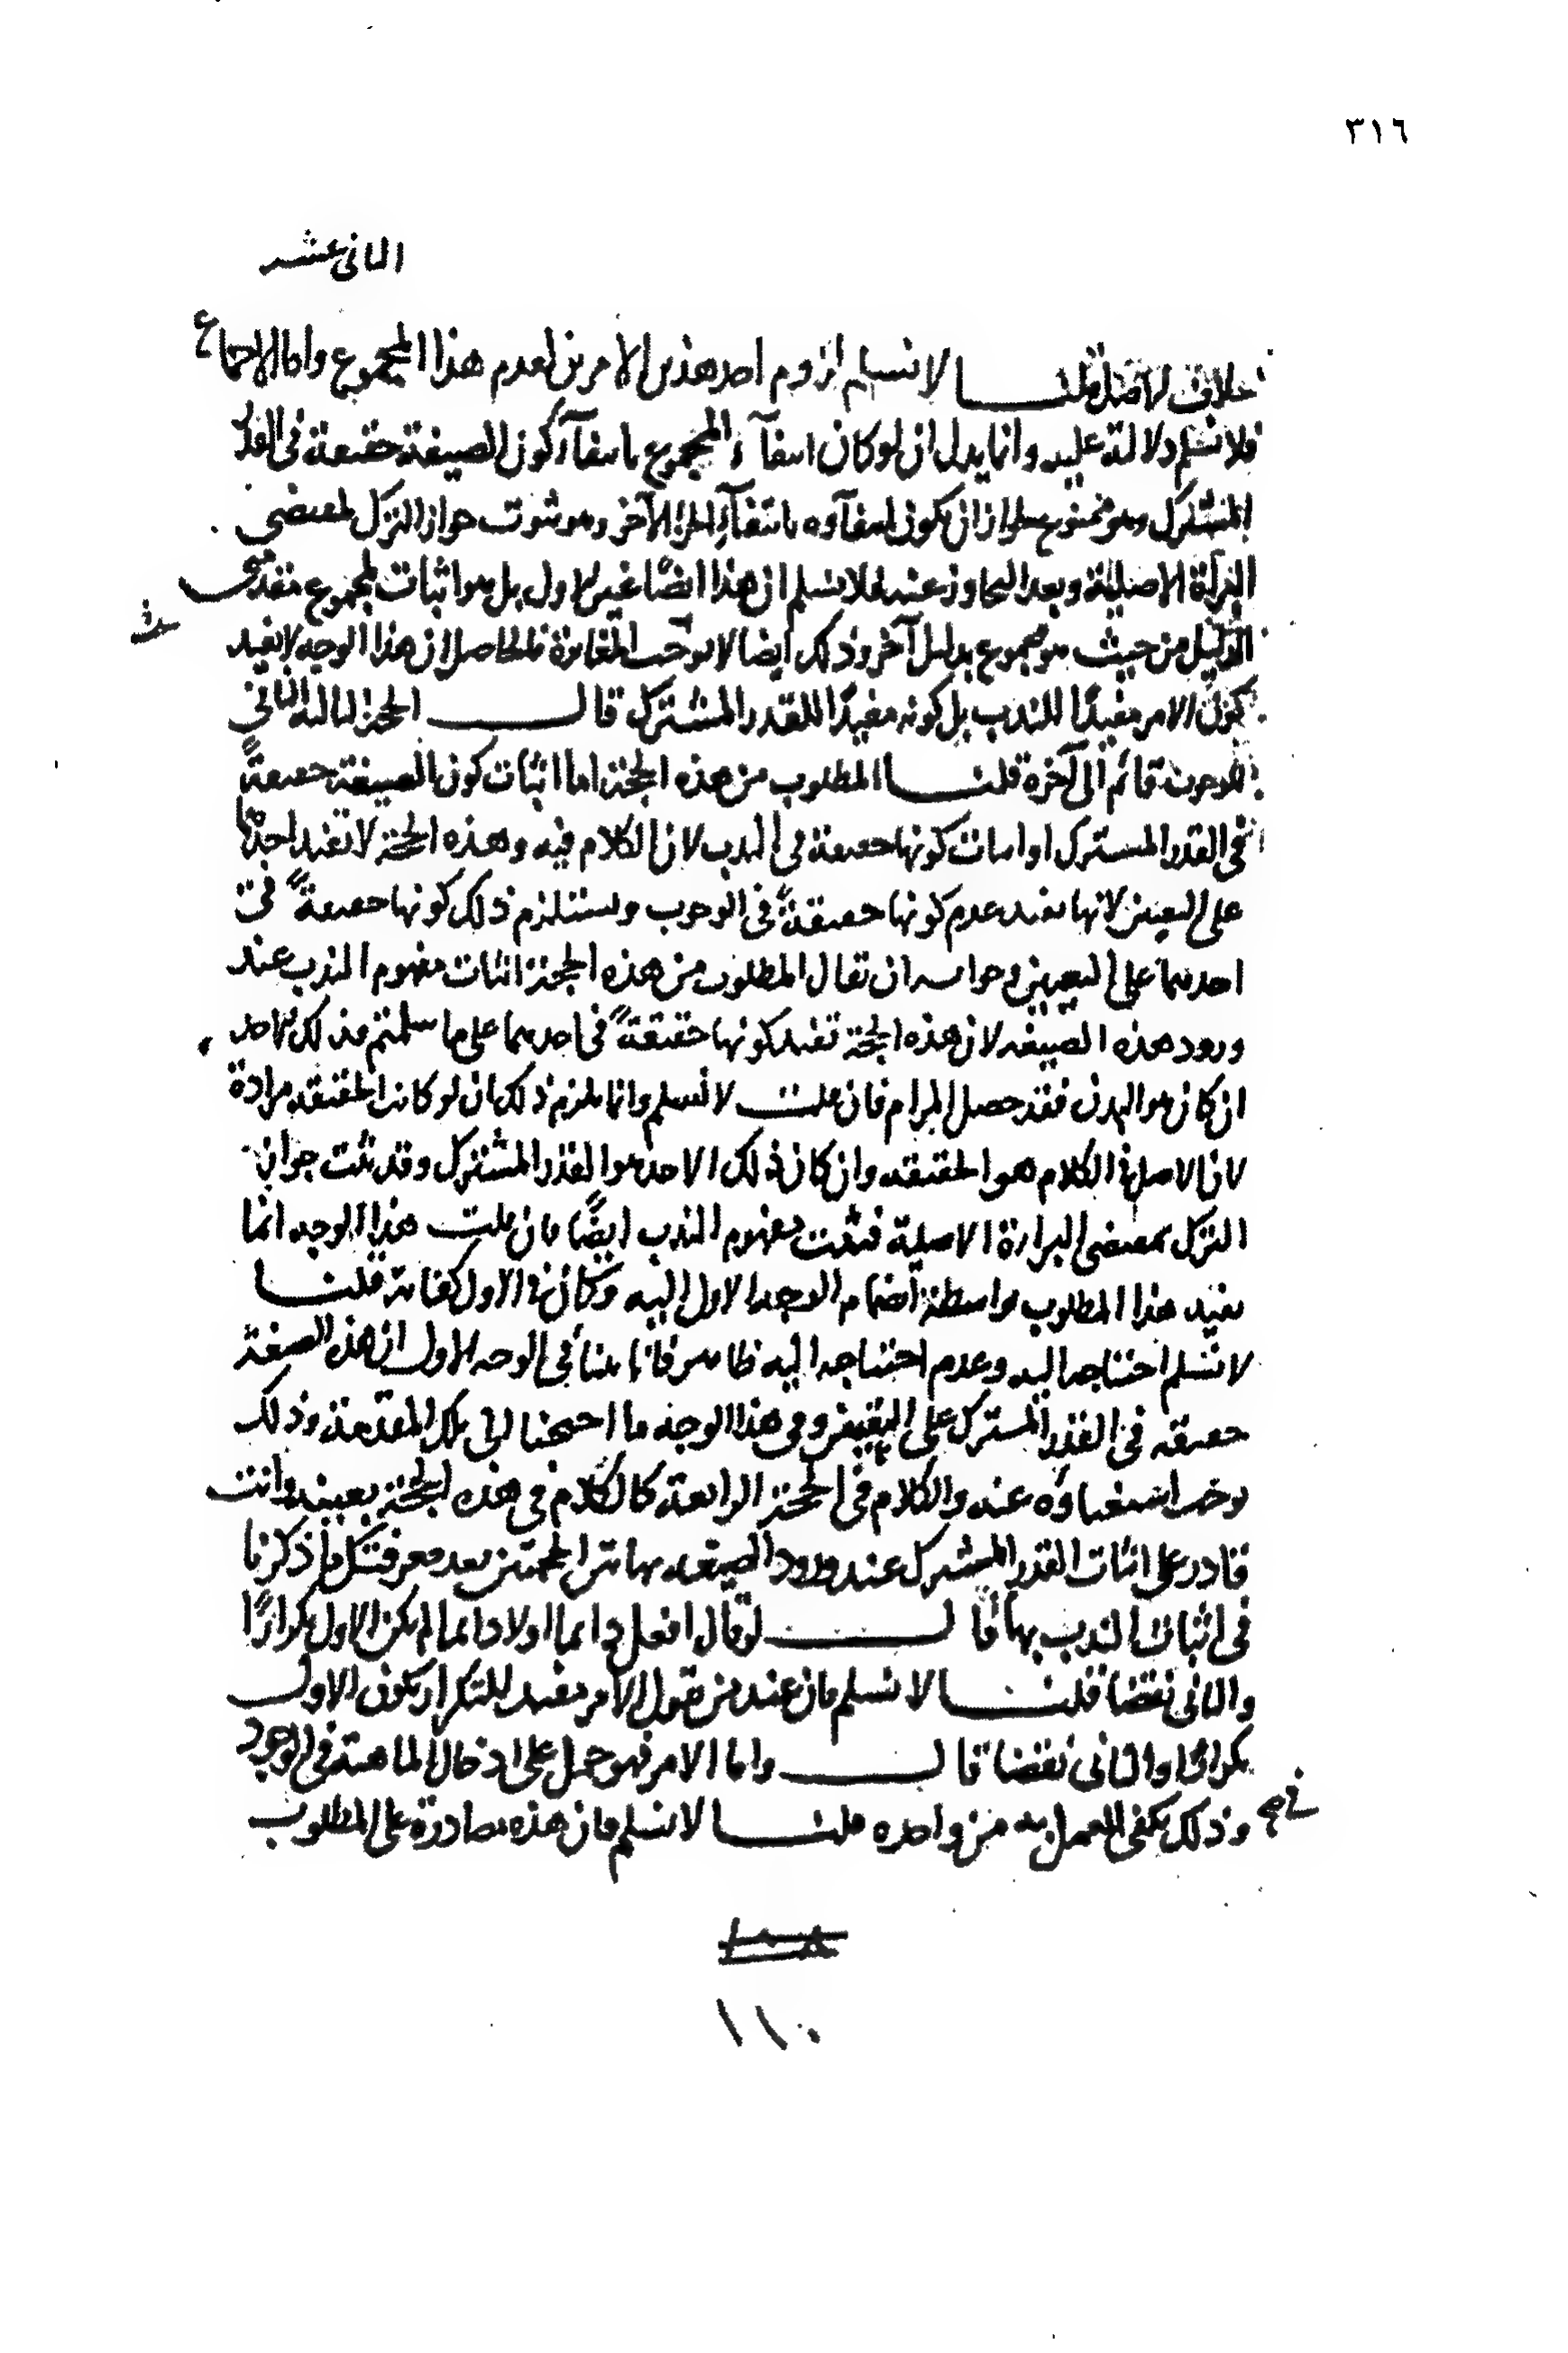 ٣١٦
الثانى عشر
خلاف الأصل قلنا لا نسلم لزوم احد هذين الامرين لعدم هذا المجموع واما الاجماع
فلا نسلم دلالته عليه وانما يدل ان لو كان انتفآء المجموع بانتفآء كون الصيغة حقيقة فى القدر
المشترك وهو ممنوع لجواز ان يكون انتفآوه بانتفآء الجزء الآخر وهو ثبوت جواز الترك بمقتضى
البرآة الاصلية وبعد التجاوز عنه فلا نسلم ان هذا ايضًا غير الاول بل هو اثبات مجموع مقدمتى
الدليل من حيث هو مجموع بدليل آخر وذلك ايضا لا يوجب المغايرة فالحاصل ان هذا الوجه لا يفيد
كون الامر مفيدًا للندب بل كونه مفيدًا للقدر المشترك قال الحجة الثالثة الثانى
للوجوب قائم الى آخره قلنا المطلوب من هذه الحجة اما اثبات كون الصيغة حقيقةً
فى القدر المشترك او اثبات كونها حقيقة فى الندب لان الكلام فيه وهذه الحجة لا تفيد احدهما
على التعيين لانها تفيد عدم كونها حقيقةً فى الوجوب ويستلزم ذلك كونها حقيقةً فى
احديهما على التعيين وجوابه ان نقال المطلوب من هذه الحجة اثبات مفهوم الندب عند
ورود هذه الصيغه لان هذه الحجة تفيد كونها حقيقةً فى احديهما على ما سلمتم فذلك الاحد
ان كان هو الندب فقد حصل المرام فان قلت لا نسلم وانما يلزم ذلك ان لو كانت الحقيقه مرادة
لان الاصل فى الكلام هو الحقيقه وان كان ذلك الاحد هو القدر المشترك وقد ثبت جواز
الترك بمقتضى البراءة الاصلية فثبت مفهوم الندب ايضًا فان قلت هذا الوجه انما
يفيد هذا المطلوب بواسطة انضمام الوجه الاول اليه وكان فى الاول كفاية قلنا
لا نسلم احتياجه اليه وعدم احتياجه اليه ظاهر فانا بينا فى الوجه الاول ان هذه الصيغة
حقيقه فى القدر المشترك على التعيين وفى هذا الوجه ما احتجنا الى تلك المقدمة وذلك
يوجب استغناؤه عنه والكلام فى الحجة الرابعة كالكلام فى هذه الحجة بعينه وانت
قادر على اثبات القدر المشترك عند ورود الصيغه بهاتين الحجتين بعد معرفتك ما ذكرنا
فى اثبات الندب بها قال لو قال افعل دائما او لا دائما لم يكن الاول تكرارًا
والثانى نقضا قلنا لا نسلم فان عند من يقول الامر مفيد للتكرار يكون الاول
تكرارًا والثانى نقضا قال واما الامر فهو حمل على ادخال الماهية فى الوجود
وذلك يكفى العمل به مرة واحده قلنا لا نسلم فان هذه مصادرة على المطلوب
١١٠